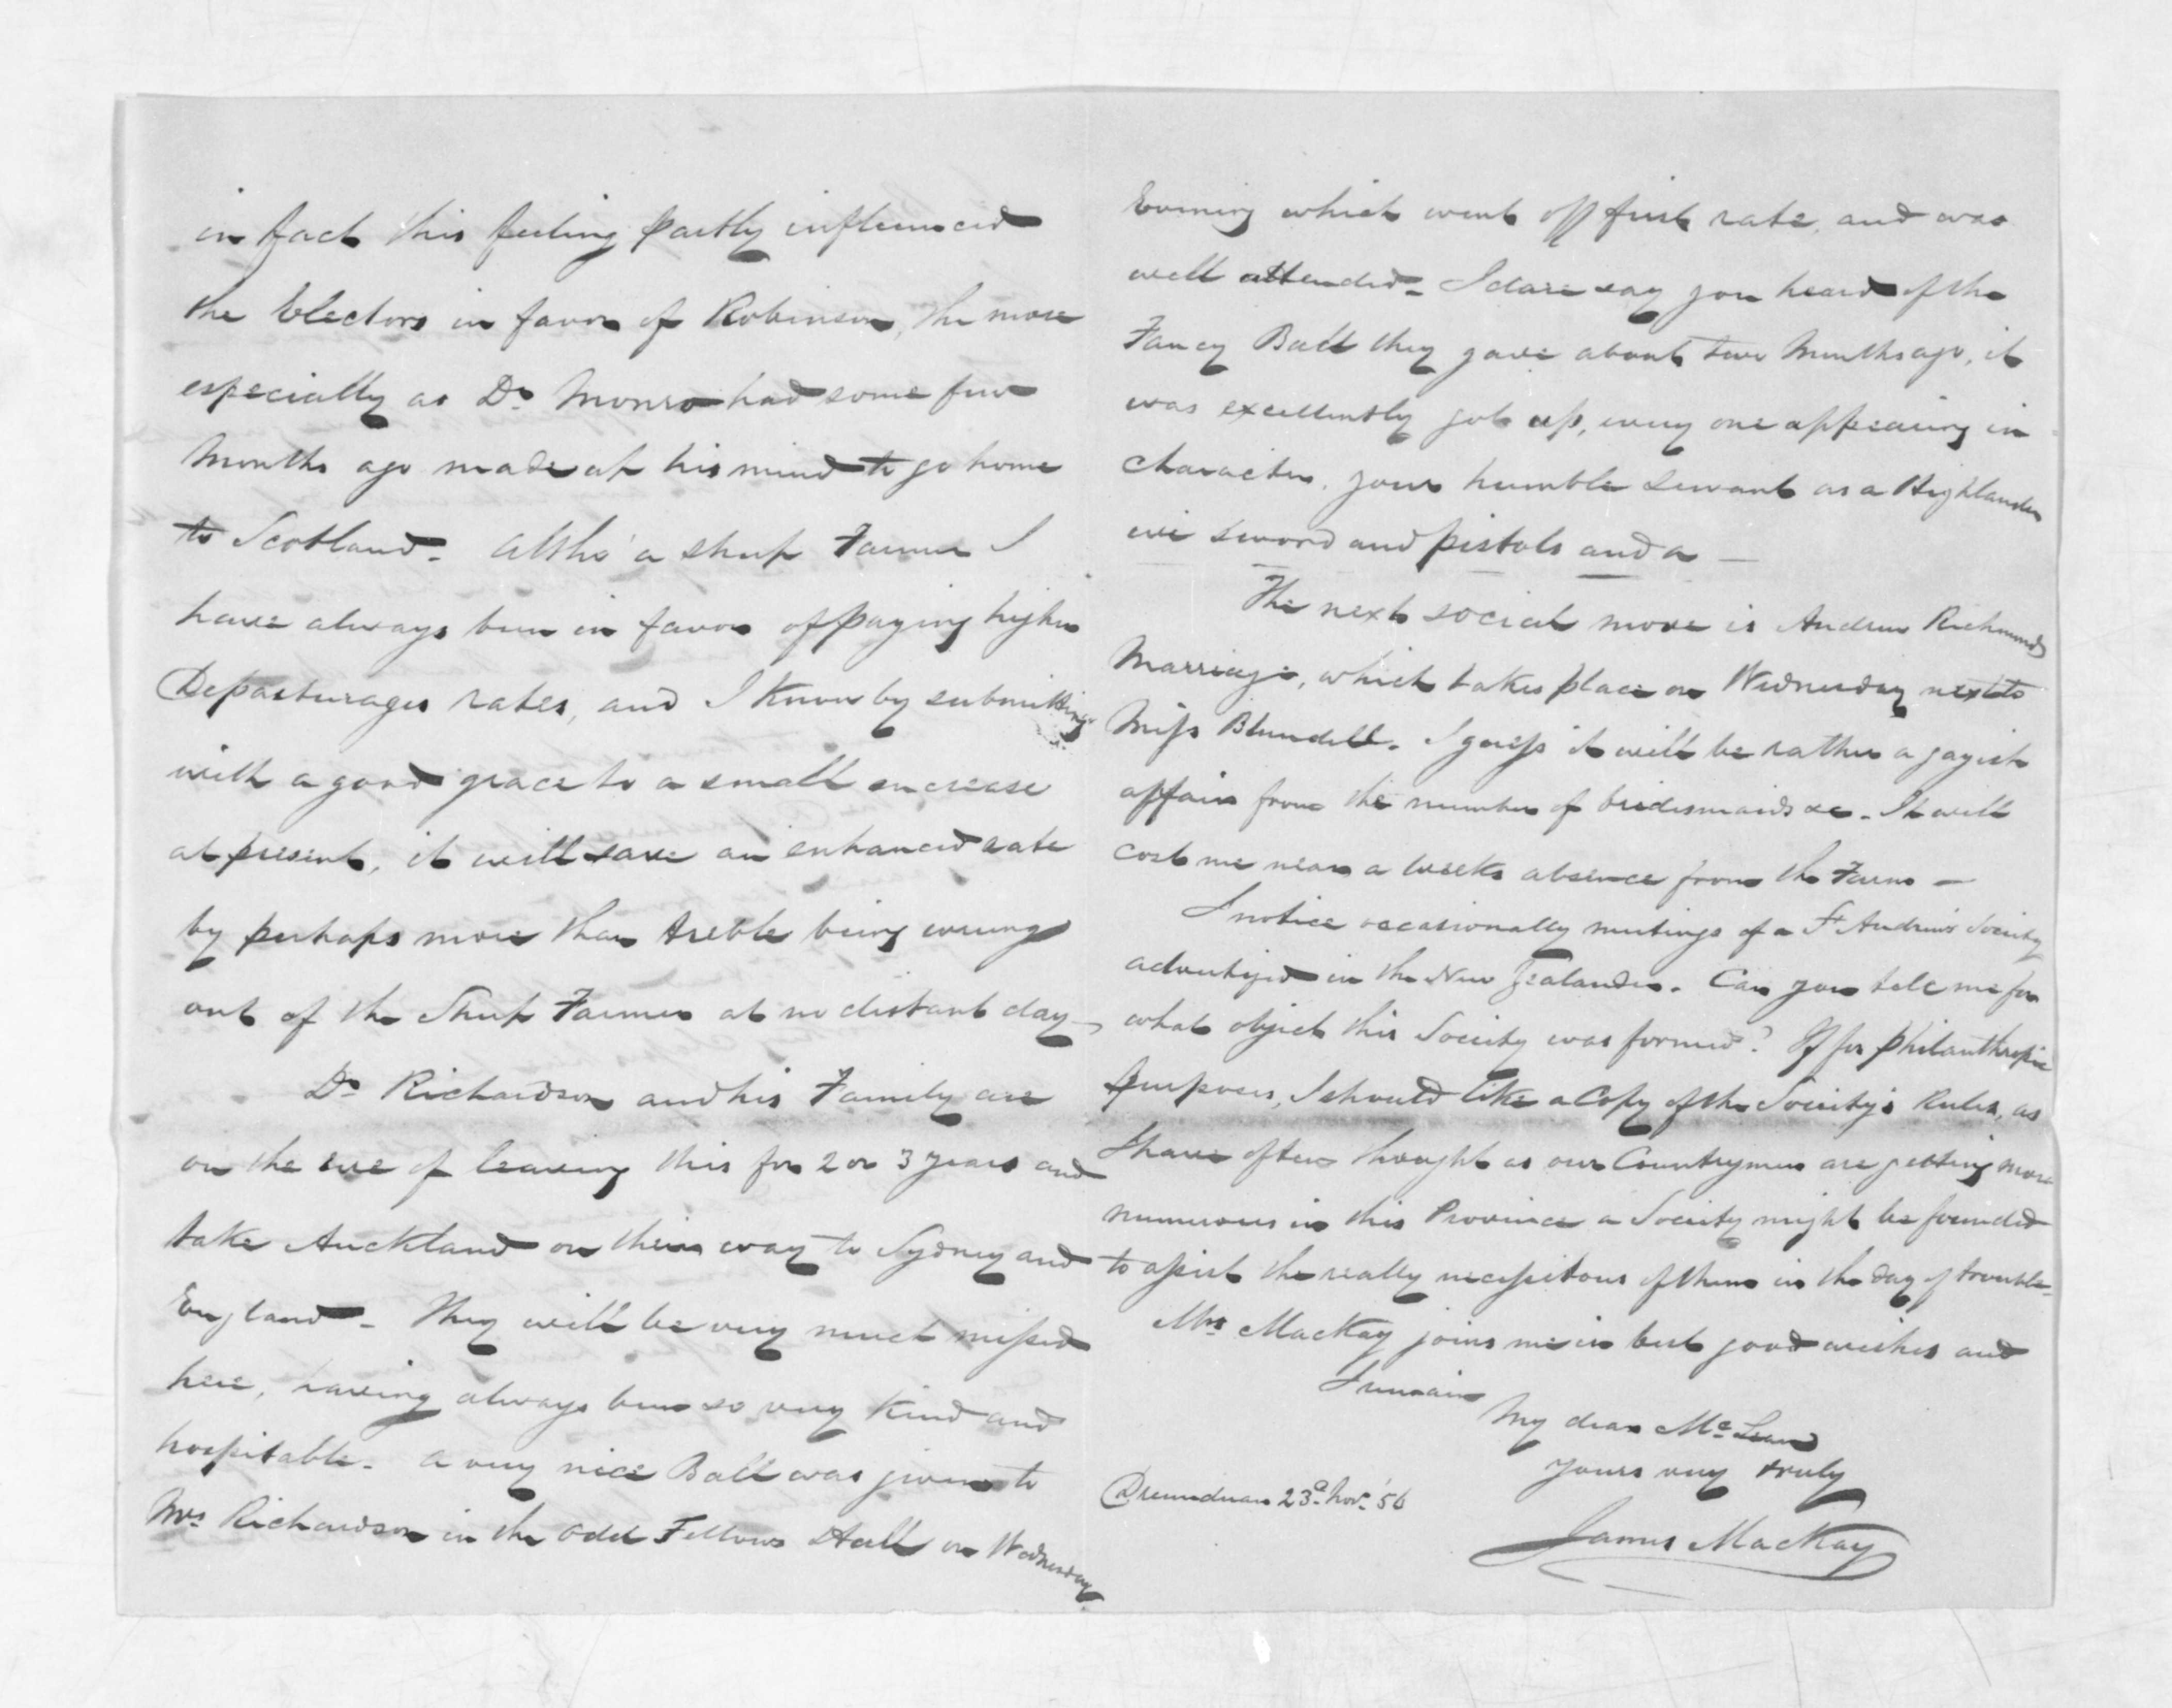 in fact this feeling partly influenced
the Electors in favor of Robinson, the more
especially as Dr. Monro had some few
Months ago made up his mind to go home
to Scotland. Altho' a sheep Farmer I
have always been in favor of paying higher
Depasturages rates, and I know by submitting
with a good grace to a small encrease
at present, it will save an enhanced rate
by perhaps more than treble being wrung
out of the Sheep Farmer at no distant day -
Dr. Richardson and his Family are
on the eve of leaving this for 2 or 3 years and
take Auckland on their way to Sydney and
England - They will be very much missed
here, having always been so very kind and
hospitable. A very nice Ball was given to
Mrs Richardson in the Odd Fellows Hall on Wednesday
Evening which went off first rate, and was
well attended. I dare say you heard of the
Fancy Ball they gave about two Months ago, it
was excellently got up, every one appearing in
character, your humble servant as a Highlander
wi sword and pistols and a —
The next social move is Andrew Richmonds
Marriage, which takes place on Wednesday next to
Miss Blundell. I guess it will be rather a gayish
affair from the number of bridesmaids &c. It will
cost me near a weeks absence from the Farm —
I notice occasionally meetings of a St Andrew's Society
advertized in the New Zealander. Can you tell me for
what object this Society was formed? If for philanthropic
purposes, I should like a Copy of the Society's Rules, as
I have often thought as our Countrymen are getting more
numerous in this Province a Society might be founded
to assist the really necessitous of them in the day of trouble -
Mrs MacKay joins me in best good wishes and
I remain
My dear McLean
Yours very truly
Drumduan 23d. Nov. '56
James MacKay